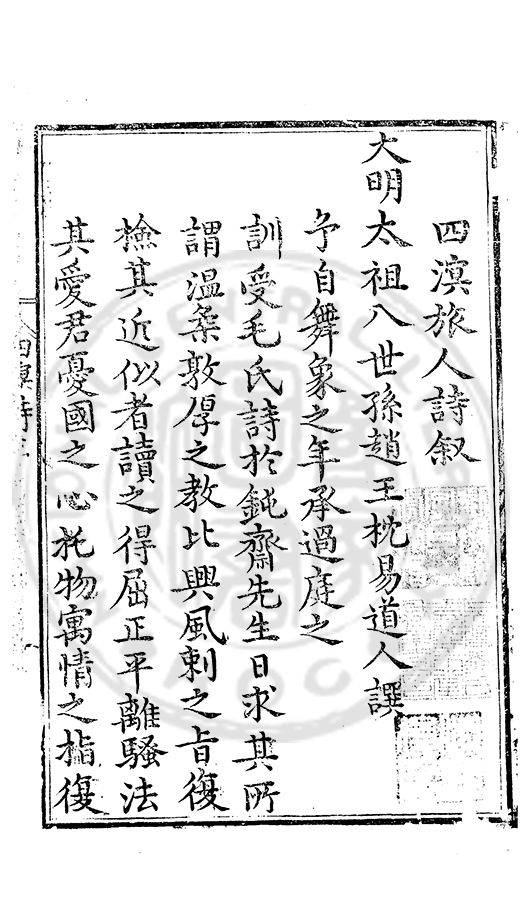 四溟旅人詩叙
大明太祖八世孫趙王枕易道人譔
予自舞象之年承過庭之
訓受毛氏詩於鈍齋先生日求其所
謂温柔敦厚之教比興風刺之旨復
檢其近似者讀之得屈正平離騷法
其愛君憂國之心托物寓情之指復
四溟詩